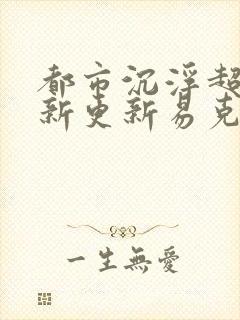 都市沉浮超
新更新易克
一生無愛